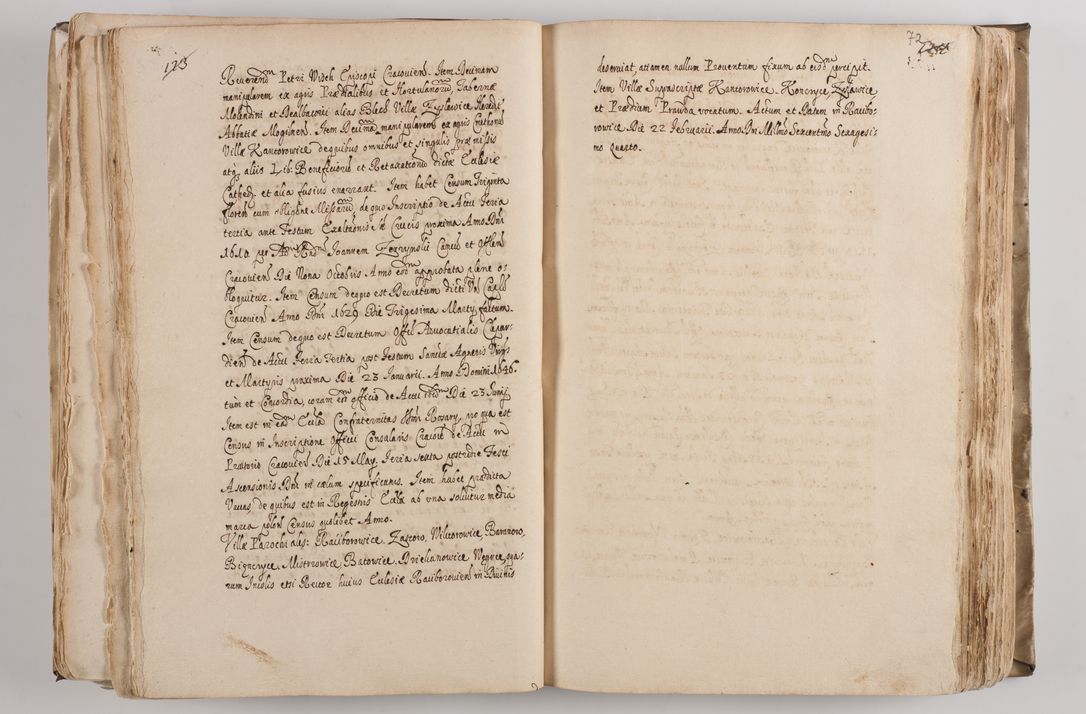 123
Reverendm Petri Widek Episcopi Cracovien. Item Decimam
manipularem ex agris Prædialibus et Hortulanorũ, Tabernæ
Molendini et Dealbatorii alias Blech Villæ Zyslawice Hæredit
Abbatiæ Mogilnen. Item Decimã manipularem ex agris Cmethonũ
Villæ Kancorowice de quibus omnibus et singulis præmissis
atq aliis Lib: Beneficiorũ et Retaxationũ dictæ Eclesiæ
Cathedr: et alia fusius enarrant. Item habet Censum Triginta
floren cum obligõne Missarũ, de quo Inscriptio de Actu Feria
tertia ante Festum Exaltationis S Crucis proxima Anno Dni
1610 per Adm Rdm Ioannem Cancũ et Offlem
Cracovien Die Nona Octobris Anno eodm approbata plene o
bloquitur. Item Censum de quo est Decretum dicti Dni Offlis
Cracovien Anno Dni 1629 Die Trigesima Marty, factum.
Item Censum de quo est Decretum Offii Advocatialis Clepar-
dien de Actu Feria Tertia post Festum Sanctæ Agnetis Virgs
et Martyris proxima Die 23 Ianuarii. Anno Domini 1646.
tum et Concordia, coram eod officio de Actu ibidm Die 23 Junij
Item est in eadm Ecclã Confraternitas Ssmi Rosary, pro qua est
Census in Inscriptione Officii Consularis Cracovi de Actu in
Prætorio Cracovien Die 15 May. Feria sexta postridie Festi
Ascensionis Dni in cælum specificatus. Item habet prædicta
Vacas, de quibus est in Regestris Ecclæ ab vna solvitur media
marca polon Census quolibet Anno.
Villæ Parochiales: Raciborowice. Zastow, Wiktorowice Baranowo,
Bięnczyce, Mistrzowice Batowice. Dziekanowice Węgrce, qua-
rum Incolis etsi Rector huius Eclesiæ Raciborovien in Divinis
72
deserviat, attamen nullum Proventum fixum ab eisdm percipit.
Item Villæ Suprascriptæ Kancorowice. Konczyce, Zyslawice
et Prædium Prawda vocatum. Actum et Datum in Racibo-
rowice Die 22 Februarii. Anno Dni Millmo Sexcentmo Sexagesi
mo Quarto.